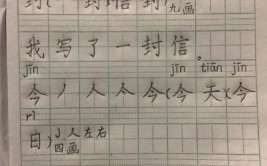 封(封信封)九画
我写了一封信。
jīn jīn tiān jīn
今丿人亼今(今天)(今
rì
日)丩人左右
四画